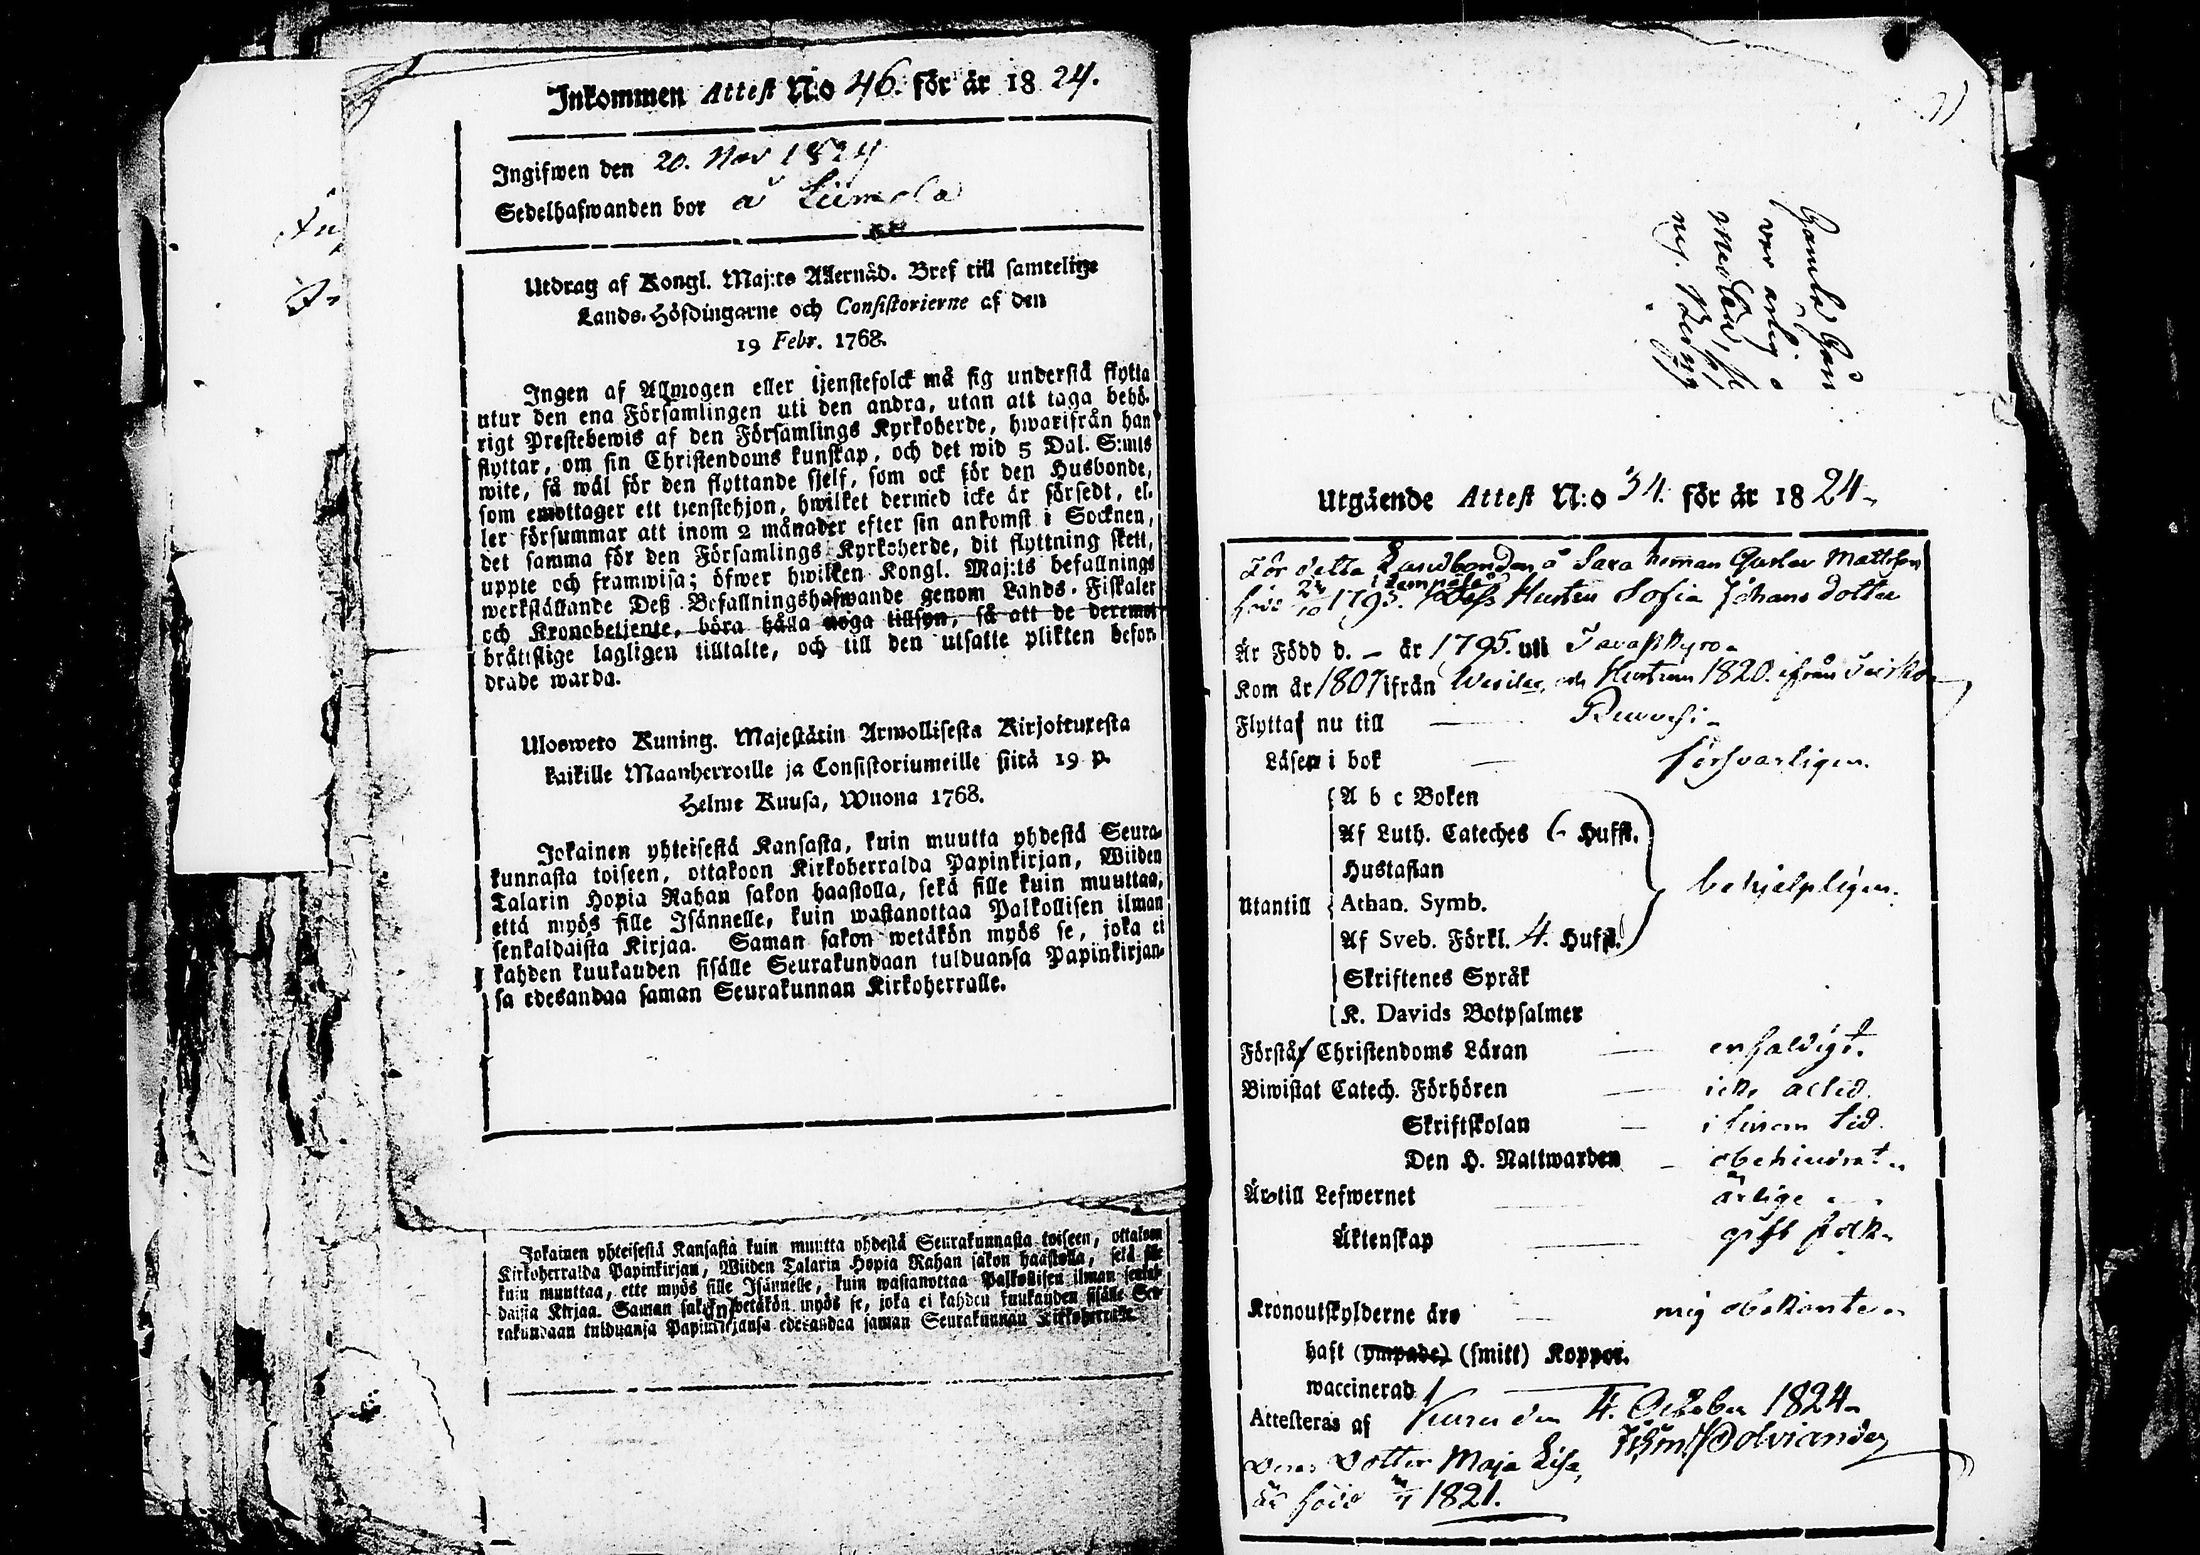 Inkommen Attest N:o 46. för år 18 24.
Ingifwen den 20. Nov 1824
Sedelhafwanden bor å Liimola
Utdrag af Kongl. Maj:ts Allernåd. Bref till samtelige
Lands-Höfdingarne och Consistorierne af den
19 Febr. 1768.
Ingen af Allmogen eller tjenstefolck må sig understå flytta
utur den ena Församlingen uti den andra, utan att taga behö-
rigt Prestebewis af den Församlings Kyrkoherde, hwarifrån han
flyttar, om sin Christendoms kunskap, och det wid 5 Dal. S:mts
wite, få wäl för den flyttande sjelf, som ock för den Husbonde,
som emottager ett tjenstehjon, hwilket dermed icke är försedt, el-
ler försummar att inom 2 månader efter sin ankomst i Socknen,
det samma för den Församlings Kyrkoherde, dit flyttning skett,
uppte och framwisa; öfwer hwilken Kongl. Maj:ts befallnings
werkställande Deß Befallningshafwande genom Lands-Fiskaler
och Kronobetjente, böra hålla noga tillsyn, få att de deremot
bråttslige lagligen tilltalte, och till den utsatte plikten befor-
drade warda.
Ulosweto Kuning. Majestätin Armollisesta Kirjoituxesta
kaikille Maanherroille ja Consistoriumeille siitä 19 p.
Helme Kuusa, Wuona 1768.
Jokainen yhteisestä Kansasta, kuin muutta yhdestä Seura-
kunnasta toiseen, ottakoon Kirkoherralda Papinkirjan, Wiiden
Talarin Hopia Rahan sakon haastolla, sekä sille kuin muuttaa,
että myös sille Isännelle, kuin wastanottaa Palkollisen ilman
senkaldaista Kirjaa. Saman sakon wetäkön myös se, joka ei
kahden kuukauden sisälle Seurakundaan tulduansa Papinkirjan-
sa edesandaa saman Seurakunnan Kirkoherralle.
Jokainen yhteisestä Kansasta kuin muutta yhdestä Seurakunnasta toiseen, ottakoon
Kirkoherralda Papinkirjan, Wiiden Talarin Hopia Rahan sakon haastolla, sekä sille
kuin muuttaa, ette myös sille Isännelle, kuin wastanottaa Palkollisen ilman senkal-
daista Kirjaa. Saman sakon wetäkön myös se, joka ei kahden kuukauden sisälle Seu-
rakundaan tulduansa Papinkirjansa edesandaa saman Seurakunnan Kirkoherralle.
Utgående Attest N:o 34. för år 18 24.
För detta Landbonden å Sara heman Gustav Mattsson
i Lempälä
född 24/10 1795. Dess Hustru Sofia Johans dotter
Är Född d. – år 1795. uti Tavastkyro
Kom år 1807 ifrån Wesilax och Hustrun 1820. ifrån
Flytta nu till Ruovesi
Läsen i bok försvarligen.
A b c Boken
Af Luth. Cateches 6 Huffst.
Hustaflan
Utantill Athan. Symb. behjelpligen.
Af Sveb. Förkl. 4. Huffst.
Skriftenes Språk
K. Davids Botpsalmer
Förstå Christendoms Läran enfaldigt.
Biwistat Catech. Förhören icke alltid.
Skriftskolan i sinom tid.
Den H. Nattwarden obehindrat
Äro till Lefwernet ärlige
Äktenskap gift folk
Kronoutskylderne äro mig obekante
haft (ympade) (smitt) Koppor.
waccinerad
Attesteras af Kuru den 4. October 1824
Dolviander
Deras Dotter Maja Lisa,
är född 1821.